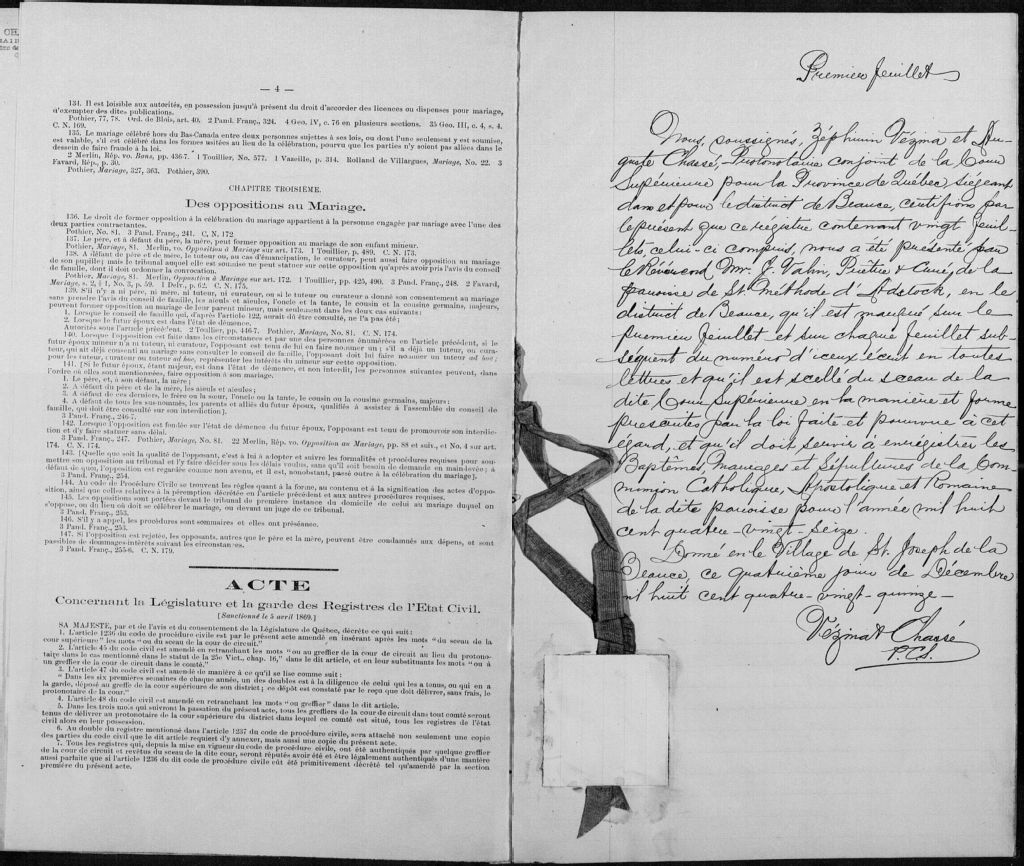 — 4 —
134. Il est loisible aux autorités, en possession jusqu'à présent du droit d'accorder des licences ou dispenses pour mariage,
d'exempter des dites publications.
Pothier, 77, 78. Ord. de Blois, art. 40. 2 Pand. Franç., 324. 4 Geo. IV, c. 76 en plusieurs sections. 35 Geo. III, c. 4, s. 4.
C. N. 169.
135. Le mariage célébré hors du Bas-Canada entre deux personnes sujettes à ses lois, ou dont l'une seulement y est soumise,
est valable, s'il est célébré dans les formes usitées au lieu de la célébration, pourvu que les parties n'y soient pas allées dans le
dessein de faire fraude à la loi.
2 Merlin, Rép. vo. Bans, pp. 436-7. 1 Touillier, No. 577. 1 Vazeille, p. 314. Rolland de Villargues, Mariage, No. 22. 3
Favard, Rép., p. 30.
Pothier, Mariage, 327, 363. Pothier, 390.
CHAPITRE TROISIÈME.
Des oppositions au Mariage.
136. Le droit de former opposition à la célébration du mariage appartient à la personne engagée par mariage avec l'une des
deux parties contractantes.
Pothier, No. 81. 3 Pand. Franç., 241. C. N. 172.
137. Le père, et à défaut du père, la mère, peut former opposition au mariage de son enfant mineur.
Pothier, Mariage, 81. Merlin, vo. Opposition à Mariage sur art. 173. 1 Touillier, p. 489. C. N. 173.
138. A défaut de père et de mère, le tuteur ou, en cas d'émancipation, le curateur, peut aussi faire opposition au mariage
de son pupille; mais le tribunal auquel elle est soumise ne peut statuer sur cette opposition qu'après avoir pris l'avis du conseil
de famille, dont il doit ordonner la convocation.
Pothier, Mariage, 81. Merlin, Opposition à Mariage sur art. 172. 1 Touillier, pp. 425, 490. 3 Pand. Franç., 248. 2 Favard,
Mariage, s. 2, § 1, No. 3, p. 59. 1 Delv., p. 62. C. N. 175.
139. S'il n'y a ni père, ni mère, ni tuteur, ni curateur, ou si le tuteur ou curateur a donné son consentement au mariage
sans prendre l'avis du conseil de famille, les aïeuls et aïeules, l'oncle et la tante, le cousin et la cousine germains, majeurs,
peuvent former opposition au mariage de leur parent mineur, mais seulement dans les deux cas suivants:
1. Lorsque le conseil de famille qui, d'après l'article 122, aurait dû être consulté, ne l'a pas été;
2. Lorsque le futur époux est dans l'état de démence.
Autorités sous l'article précédent. 2 Toullier, pp. 416-7. Pothier, Mariage, No. 81. C. N. 174.
140. Lorsque l'opposition est faite dans les circonstances et par une des personnes énumérées en l'article précédent, si le
futur époux mineur n'a ni tuteur, ni curateur, l'opposant est tenu de lui en faire nommer un; s'il a déjà un tuteur, ou cura-
teur, qui ait déjà consenti au mariage sans consulter le conseil de famille, l'opposant doit lui faire nommer un tuteur ad hoc;
pour les tuteur, curateur ou tuteur ad hoc, représenter les intérêts du mineur sur cette opposition.
141. [Si le futur époux, étant majeur, est dans l'état de démence, et non interdit, les personnes suivantes peuvent, dans
l'ordre où elles sont mentionnées, faire opposition à son mariage.
1. Le père, et, à son défaut, la mère;
2. A défaut du père et de la mère, les aïeuls et aïeules;
3. A défaut de ces derniers, le frère ou la sœur, l'oncle ou la tante, le cousin ou la cousine germains, majeurs;
4. A défaut de tous les sus-nommés, les parents et alliés du futur époux, qualifiés à assister à l'assemblée du conseil de
famille, qui doit être consulté sur son interdiction].
3 Pand. Franç., 246-7.
142. Lorsque l'opposition est fondée sur l'état de démence du futur époux, l'opposant est tenu de promouvoir son interdic-
tion et d'y faire statuer sans délai.
3 Pand. Franç., 247. Pothier, Mariage, No. 81. 22 Merlin, Rép. vo. Opposition au Mariage, pp. 88 et suiv., et No. 4 sur art.
174. C. N. 174.
143. [Quelle que soit la qualité de l'opposant, c'est à lui à adopter et suivre les formalités et procédures requises pour sou-
mettre son opposition au tribunal et l'y faire décider sous les délais voulus, sans qu'il soit besoin de demande en main-levée; à
défaut de quoi, l'opposition est regardée comme non avenue, et il est, nonobstant, passé outre à la célébration du mariage].
3 Pand. Franç., 254.
144. Au code de Procédure Civile se trouvent les règles quant à la forme, au contenu et à la signification des actes d'oppo-
sition, ainsi que celles relatives à la péremption décrétée en l'article précédent et aux autres procédures requises.
145. Les oppositions sont portées devant le tribunal de première instance du domicile de celui au mariage duquel on
s'oppose, ou du lieu où doit se célébrer le mariage, ou devant un juge de ce tribunal.
3 Pand. Franç., 253.
146. S'il y a appel, les procédures sont sommaires et elles ont préséance.
3 Pand. Franç., 253.
147. Si l'opposition est rejetée, les opposants, autres que le père et la mère, peuvent être condamnés aux dépens, et sont
passibles de dommages-intérêts suivant les circonstances.
3 Pand. Franç., 255-6. C. N. 179.
ACTE
Concernant la Législature et la garde des Registres de l'Etat Civil.
[Sanctionné le 5 avril 1869.]
SA MAJESTE, par et de l'avis et du consentement de la Législature de Québec, décrète ce qui suit:
1. L'article 1236 du code de procédure civile est par le présent acte amendé en insérant après les mots "du sceau de la
cour supérieure" les mots "ou du sceau de la cour de circuit."
2. L'article 45 du code civil est amendé en retranchant les mots "ou au greffier de la cour de circuit au lieu du protono-
taire dans le cas mentionné dans le statut de la 25e Vict., chap. 16," dans le dit article, et en leur substituants les mots "ou à
un greffier de la cour de circuit dans le comté."
3. L'article 47 du code civil est amendé de manière à ce qu'il se lise comme suit:
"Dans les six premières semaines de chaque année, un des doubles est à la diligence de celui qui les a tenus, ou qui en a
la garde, déposé au greffe de la cour supérieure de son district; ce dépôt est constaté par le reçu que doit délivrer, sans frais, le
protonotaire de la cour."
4. L'article 48 du code civil est amendé en retranchant les mots "ou greffier" dans le dit article.
5. Dans les trois mois qui suivront la passation du présent acte, tous les greffiers de la cour de circuit dans tout comté seront
tenus de délivrer au protonotaire de la cour supérieure du district dans lequel ce comté est situé, tous les registres de l'état
civil alors en leur possession.
6. Au double du registre mentionné dans l'article 1237 du code de procédure civile, sera attaché non seulement une copie
des parties du code civil que le dit article requiert d'y annexer, mais aussi une copie du présent acte.
7. Tous les registres qui, depuis la mise en vigueur du code de procédure civile, ont été authentiqués par quelque greffier
de la cour de circuit et revêtus du sceau de la dite cour, seront réputés avoir été et être légalement authentiqués d'une manière
aussi parfaite que si l'article 1236 du dit code de procédure civile eût été primitivement décrété tel qu'amendé par la section
première du présent acte.
Premier feuillet
Nous, soussignés, Zéphirin Vézina et Au-
guste Chassé, Protonotaire conjoint de la Cour
Supérieure pour la Province de Québec, siégeant
dans et pour le district de Beauce, certifions par
le présent que ce régistre contenant vingt feuil-
lets, celui-ci compris, nous a été présenté par
le Révérend Mr. J. Vahn, Prêtre & Curé, de la
paroisse de St. Méthode d'Adstock, en le
district de Beauce, qu'il est marqué sur le
premier feuillet et sur chaque feuillet sub-
séquent du numéro d'iceux écrit en toutes
lettres et qu'il est scellé du sceau de la
dite Cour Supérieure en la manière et forme
prescrites par la loi faite et pourvue à cet
égard, et qu'il doit servir à enregistrer les
Baptêmes, Mariages et Sépultures de la Com-
munion Catholique, Apostolique et Romaine
de la dite paroisse pour l'année mil huit
cent quatre-vingt-seize.
Donné en le Village de St. Joseph de la
Beauce, ce quatrième jour de Décembre
mil huit cent quatre-vingt-quinze-
Vézina & Chassé
P.C.S.